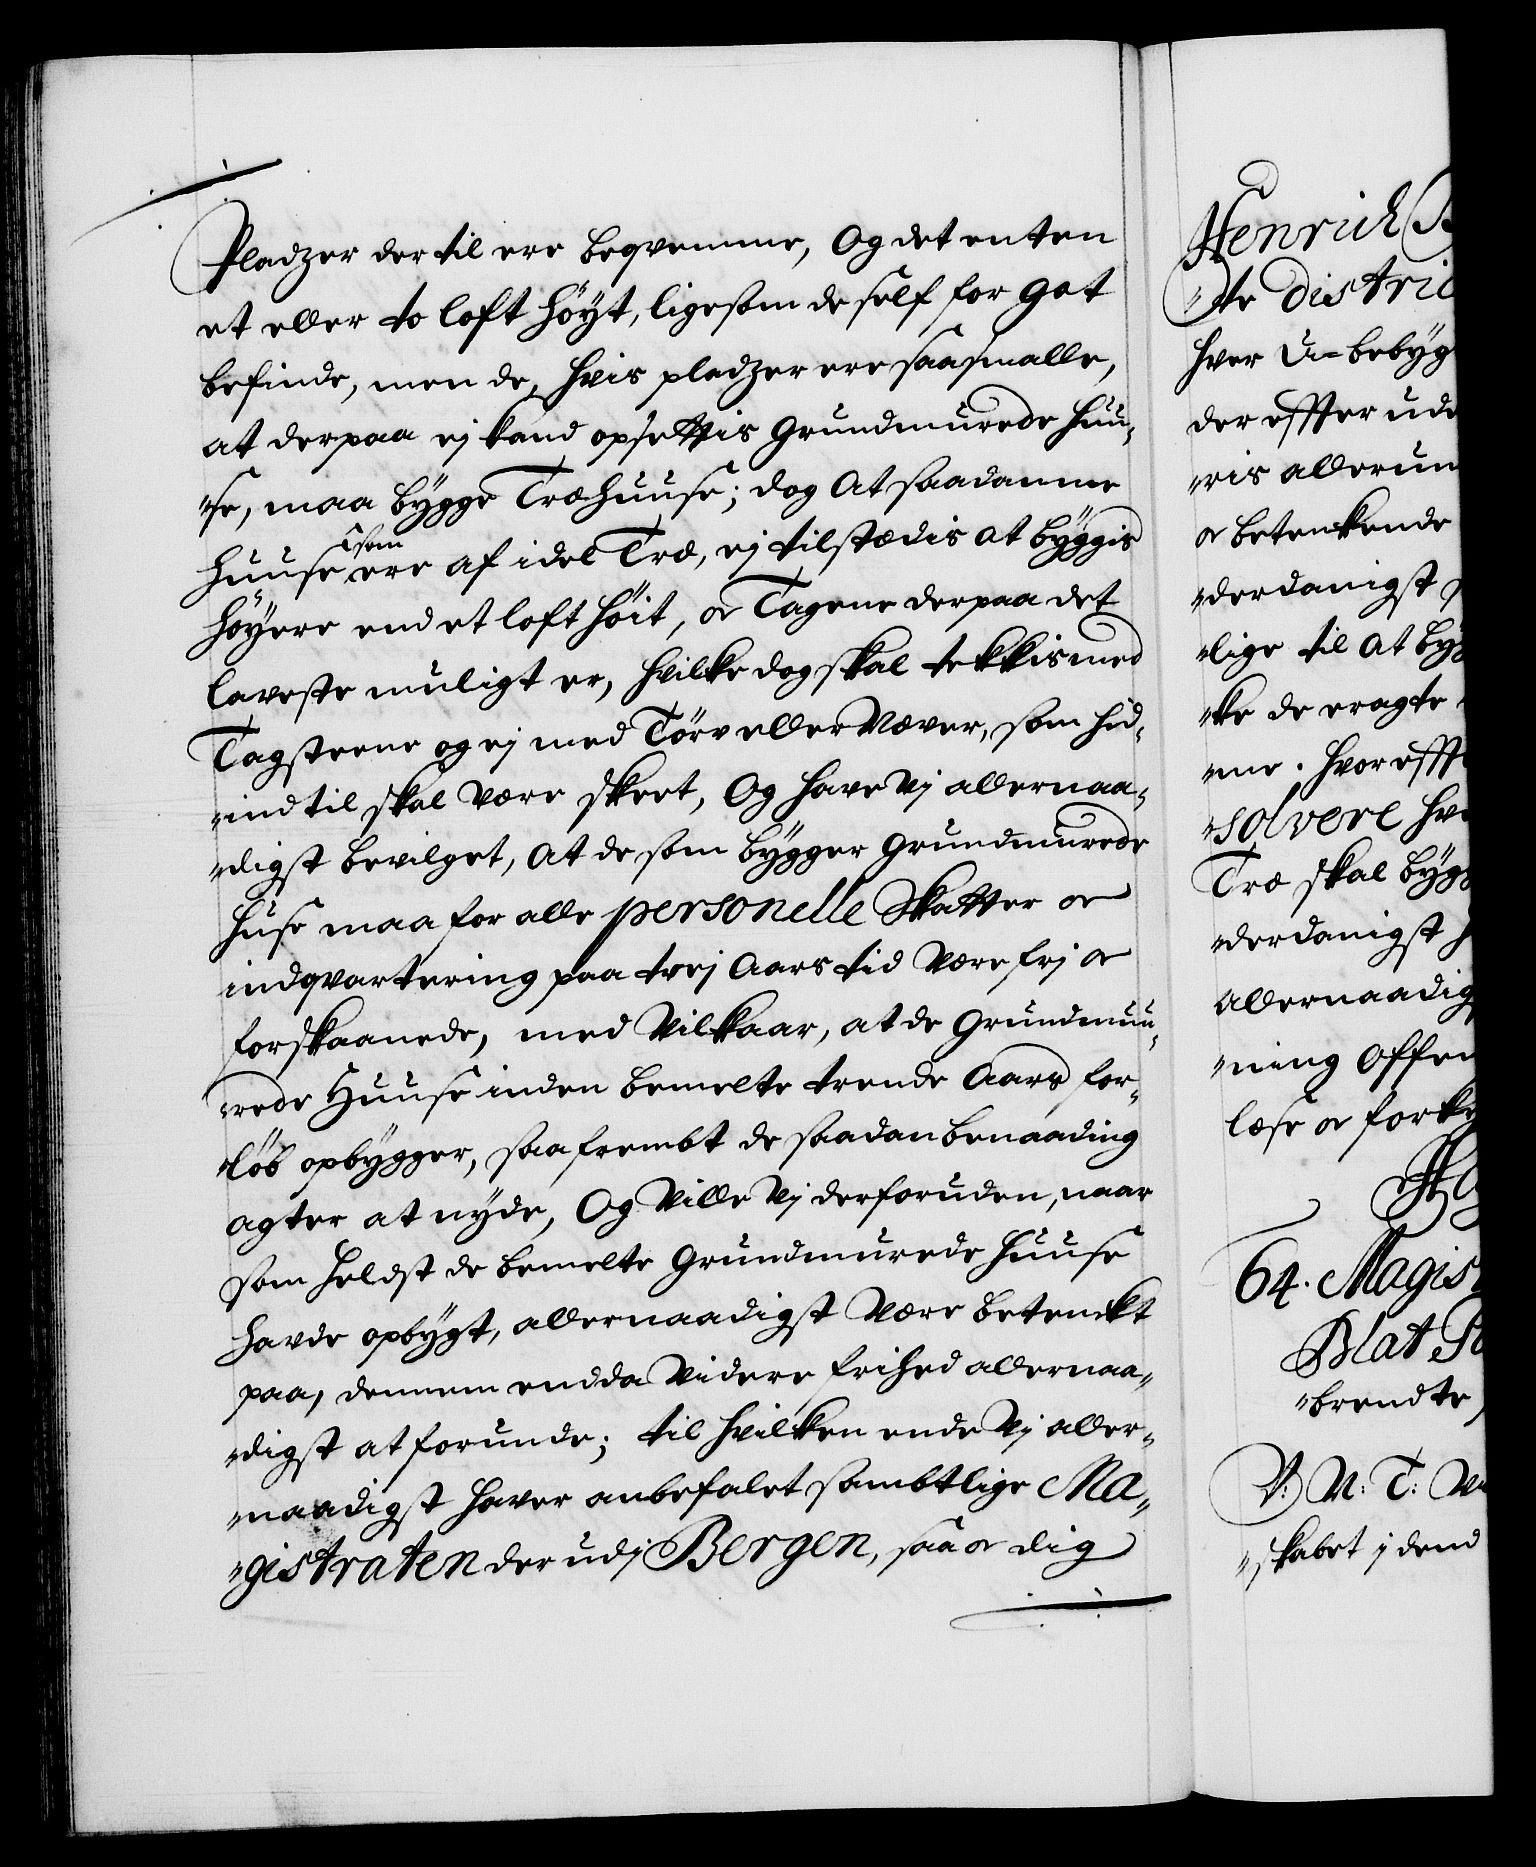 Pladzer der til ere beqvemme, Og det enten
et eller to loft höyt, ligesom de self for got
befinde, men de, hvis pladzer ere saa smalle,
at derpaa ej kand opsettis Grundmurede Huu,
"se, maa bygge Træhuuse; dog At saadanne
Huuse som ere af idel Træ, ej tilstædis at byggis
höyere end et loft höit, oc Tagene derpaa det
laveste muligt er, hvilke dog skal tekkis med
Tagsteene og ej med Törv eller Næver, som hid,
"ind til skal være skeet, Og have Vj allernaa,
"digst bevilget, At de som bygger Grundmurede
Huse maa for alle personelle Skatter oc
indqvartering paa trej Aars tid være frj oc
forskaanede, med Vilkaar, at de Grundmuu,
"rede Huuse inden bemelte trende Aars for,
"löb opbygger, saafrembt de saadan benaading
agter at nyde, Og Ville Vj derforuden, naar
som heldst de bemelte Grundmurede Huuse
havde opbygt, allernaadigst være betenckt
paa, dennem endda Videre frihed allernaa,
"digst at forunde; til hvilken ende Vj aller,
"naadigst haver anbefalet samtlige Ma,
"gistraten der udj Bergen, saa oc dig
Henrich
"te district
hver U=bebyg
der effter ud
"ris allerun
oc betenkende
"derdanigst
"lige til At byg
"ke de eragte
"me. hvor effte
"solvere hv
Træ skal byg
"derdanigst
Allernaadig
"ning Offen
læse oc forky
64. Magist
Blat
"brendte
V: N: T:
"skabet j dend